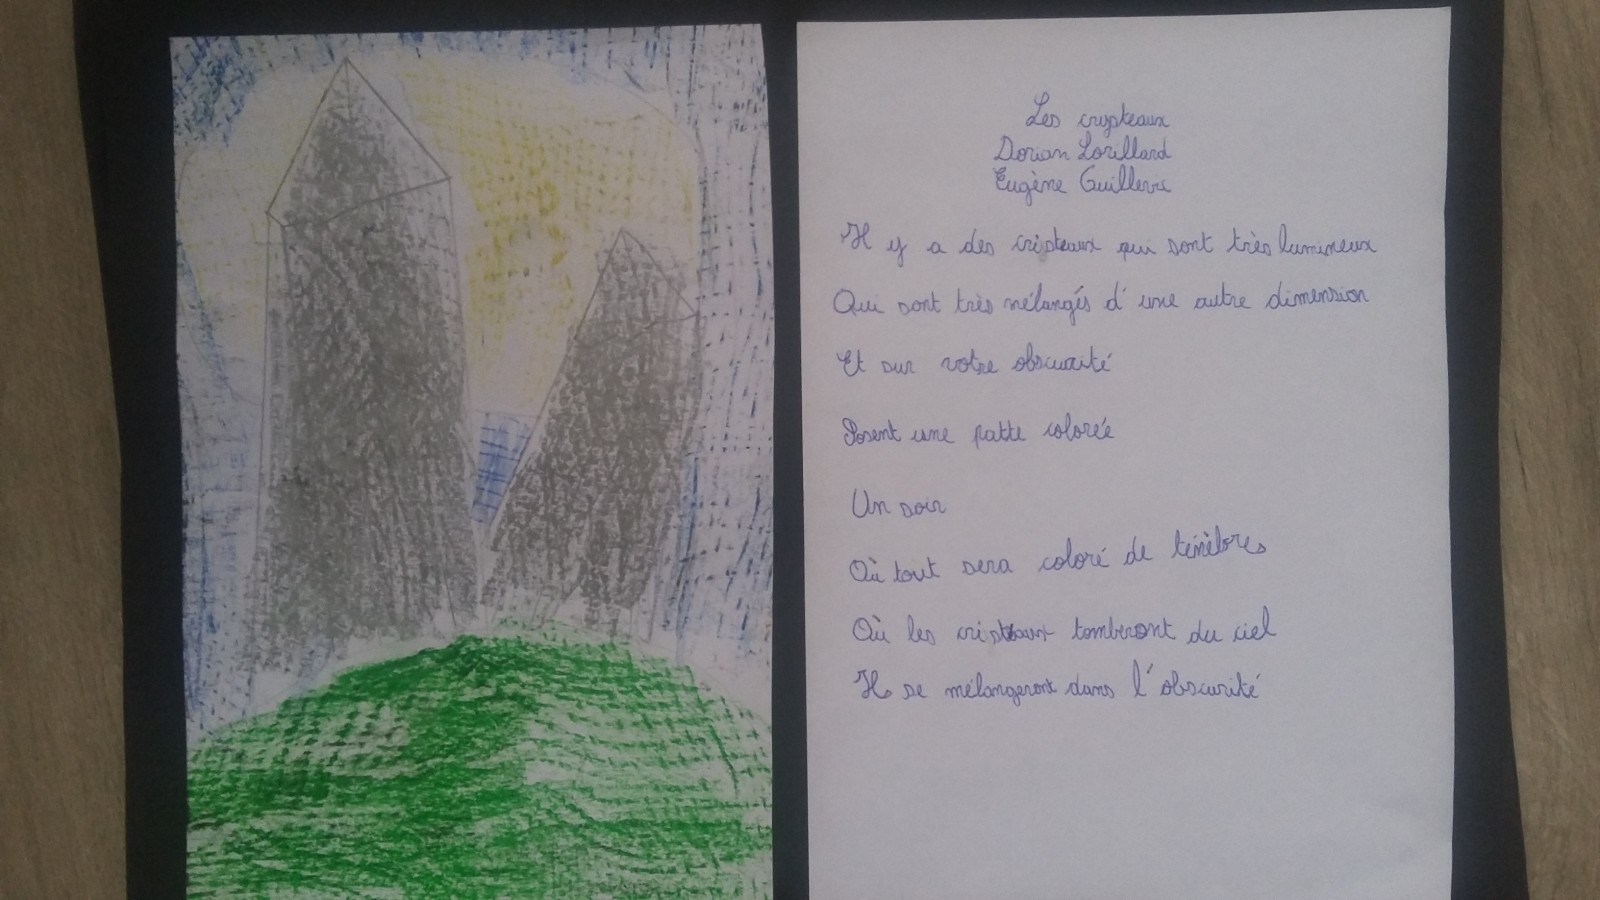 Les crypteaux
Dorian Lorillard
Eugène Guillevic
Il y a des cristeaux qui sont très lumineux
Qui sont très mélangés d'une autre dimension
Et sur votre obscurité
Posent une patte colorée
Un soir
Où tout sera coloré de ténèbres
Où les cristeaux tomberont du ciel
Ils se mélangeront dans l'obscurité